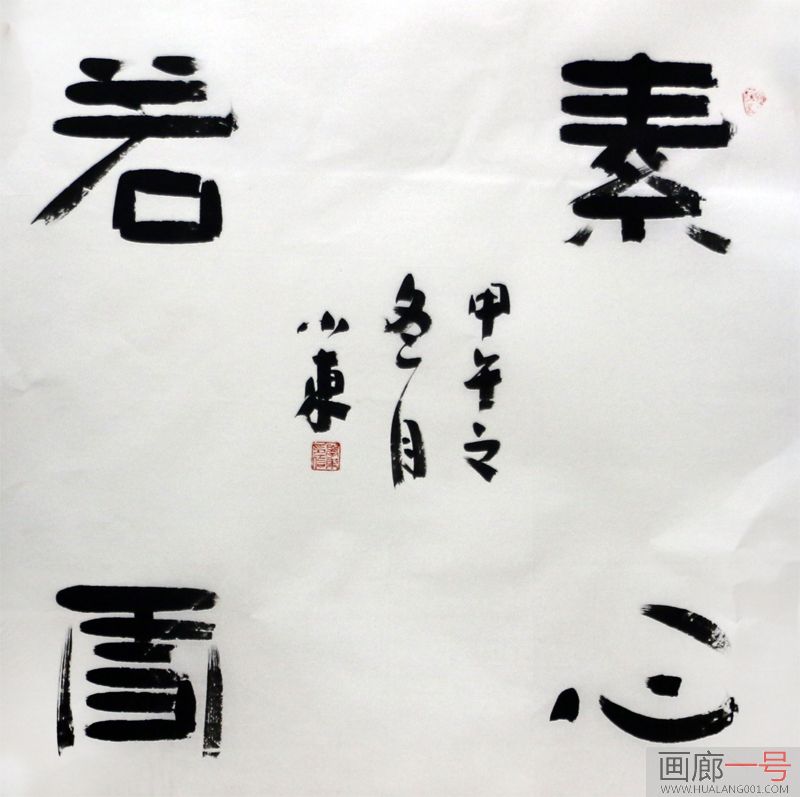 素心
若雪
甲午之
冬月
小東
画廊一号
WWW.HUALANG001.COM